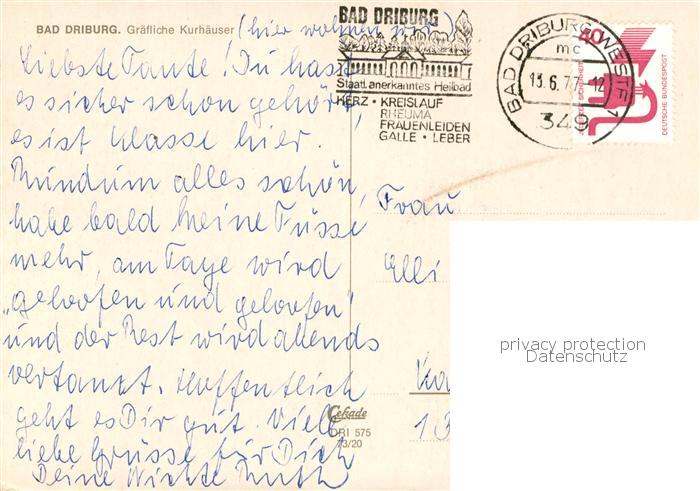 BAD DRIBURG. Gräfliche Kurhäuser (hier wohnen wir)
Liebste Tante! Du hast
es sicher schon gehört,
es ist Klasse hier.
Rundum alles schön,
habe bald keine Füsse
mehr, am Tage wird
„geloofen und geloofen"
und der Rest wird abends
vertanzt. Hoffentlich
geht es Dir gut. Viele
liebe Grüsse für Dich
Deine Nichte Ruth
BAD DRIBURG
Staatl. anerkanntes Heilbad
HERZ · KREISLAUF
RHEUMA
FRAUENLEIDEN
GALLE · LEBER
BAD DRIBURG, WESTF 1
mc
13.6.77-12
349
40
DEUTSCHE BUNDESPOST
Frau
Elli
Ka
13
Cekade
DRI 575
73/20
privacy protection
Datenschutz